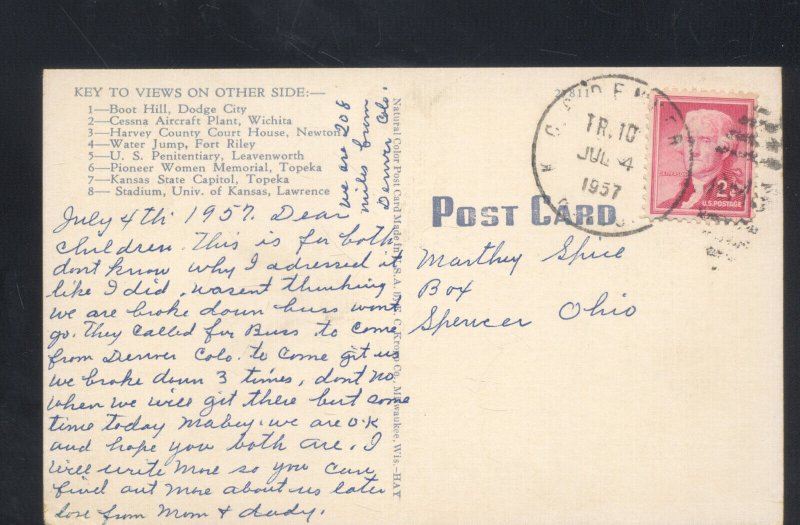 KEY TO VIEWS ON OTHER SIDE:—
1—Boot Hill, Dodge City
2—Cessna Aircraft Plant, Wichita
3—Harvey County Court House, Newton
4—Water Jump, Fort Riley
5—U. S. Penitentiary, Leavenworth
6—Pioneer Women Memorial, Topeka
7—Kansas State Capitol, Topeka
8— Stadium, Univ. of Kansas, Lawrence
we are 208
miles from
Denver Colo.
July 4th 1957. Dear
Children. This is for both
dont know why I adressed it
like I did, wasent thinking
we are broke down buss wont
go. They called for Buss to come
from Denver Colo. to come get us
we broke down 3 times, dont no
when we will get there but some
time today Mabey. we are O.K
and hope you both are. I
will write more so you can
find out more about us later
love from Mom & dady.
Natural Color Post Card Made in U.S.A. by E. C. Kropp Co., Milwaukee, Wis.—HAY
POST CARD
Marthey Spice
Box
Spencer Ohio
TR. 10
JUL 4
1957
JEFFERSON
2¢
U.S. POSTAGE